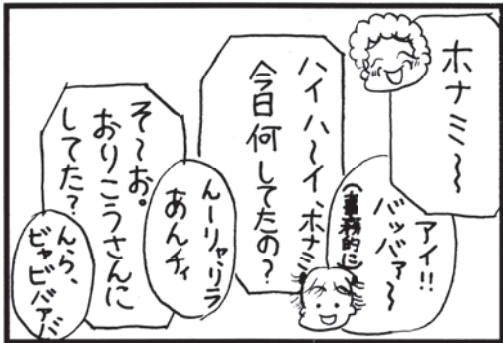 ホナミ〜
アイ!!
バッバァ〜
(事務的に)
ハイハ〜イ、ホナミ
今日何してたの?
んーリャ、リラ
あんチィ
そ〜お。
おりこうさんに
してた?
んら、
ビャビバァバ